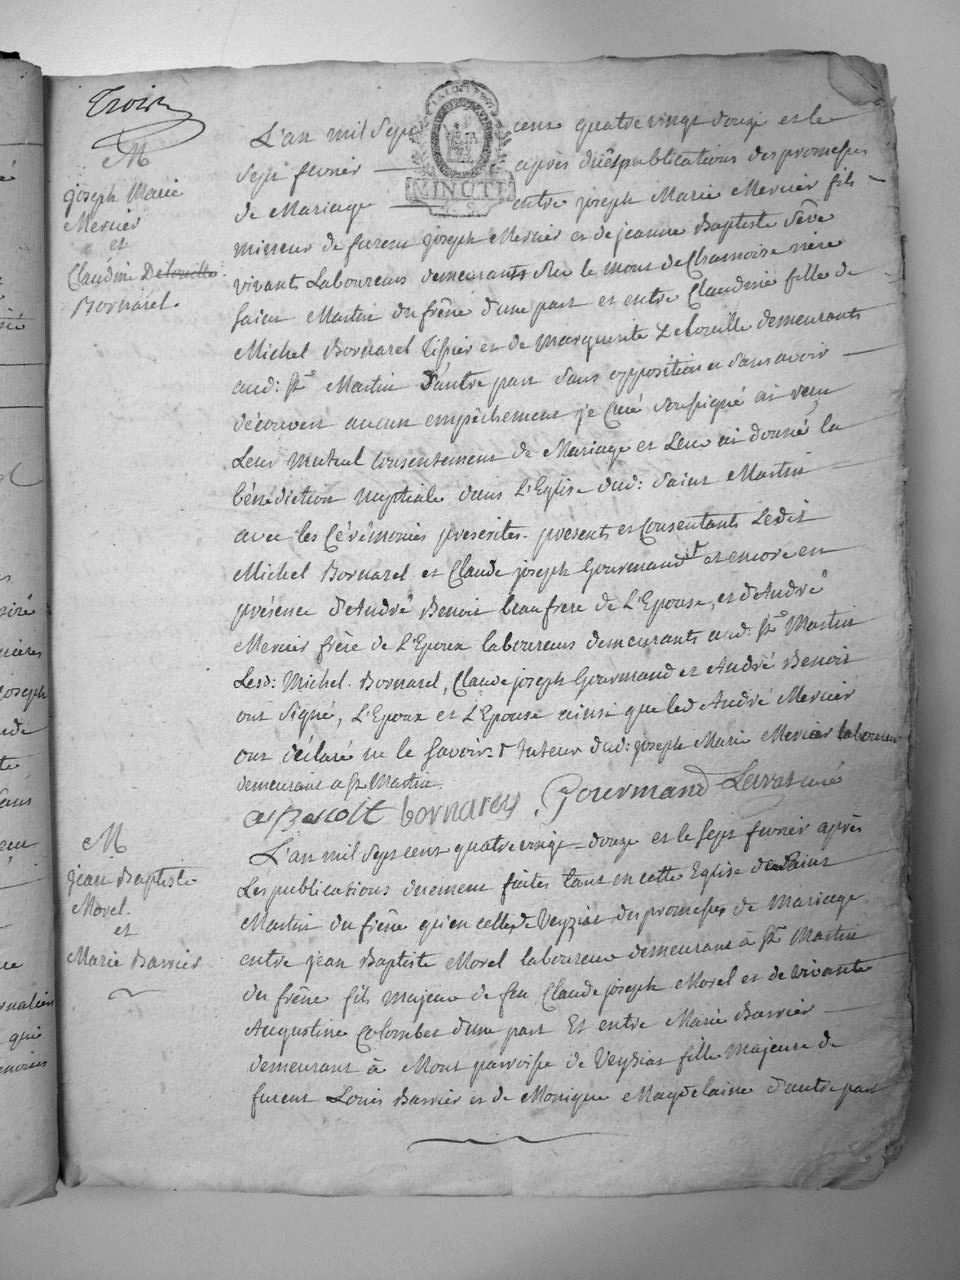 Trois
M
joseph Marie
Mercier
et
Claudine Delouille
Bornarel
L'an mil sept cent quatre vingt douze et le
sept fevrier après dües publications des promesses
MINUTE
de Mariage entre joseph Marie Mercier fils
mineur de furent joseph Mercier et de jeanne Baptiste Sêve
vivants Laboureurs demeurants sur le mont de Chamoise
Saint Martin du frêne d'une part et entre Claudine fille de
Michel Bornarel Tissier et de Marguerite Delouille demeurants
aud: St Martin d'autre part sans opposition et sans avoir
découvert aucun empêchement je Curé soussigné ai reçu
Leur mutuel Consentement de Mariage et Leur ai donné la
bénédiction nuptiale dans L'Eglise dud: Saint Martin
avec les Cérémonies prescrites. présents et Consentants Ledit
Michel Bornarel et Claude joseph Gourmand † et encore en
présence d'André Benoit beaufrere de L'Epouse, et d'André
Mercier frère de L'Epoux laboureurs demeurants aud: St Martin
Lesd: Michel Bornarel, Claude joseph Gourmand et André Benoit
ont signé, L'Epoux et L'Epouse ainsi que led André Mercier
ont déclaré ne le savoir † tuteur dud: joseph Marie Mercier laboureur
demeurant a St Martin
a Benoit bornarel Gourmand curé
M
jean Baptiste
Morel
et
Marie Barrier
L'an mil sept cent quatre vingt douze et le sept fevrier après
Les publications duement faites tant en cette Eglise de Saint
Martin du frêne qu'en celle de Veyziat des promesses de Mariage
entre jean Baptiste Morel laboureur demeurant à St Martin
du frêne fils majeur de feu Claude joseph Morel et de vivante
Augustine Colombet d'une part Et entre Marie Barrier
demeurant à Mons parroisse de Veyziat fille Majeure de
furent Louis Barrier et de Monique Magdelaine d'autre part